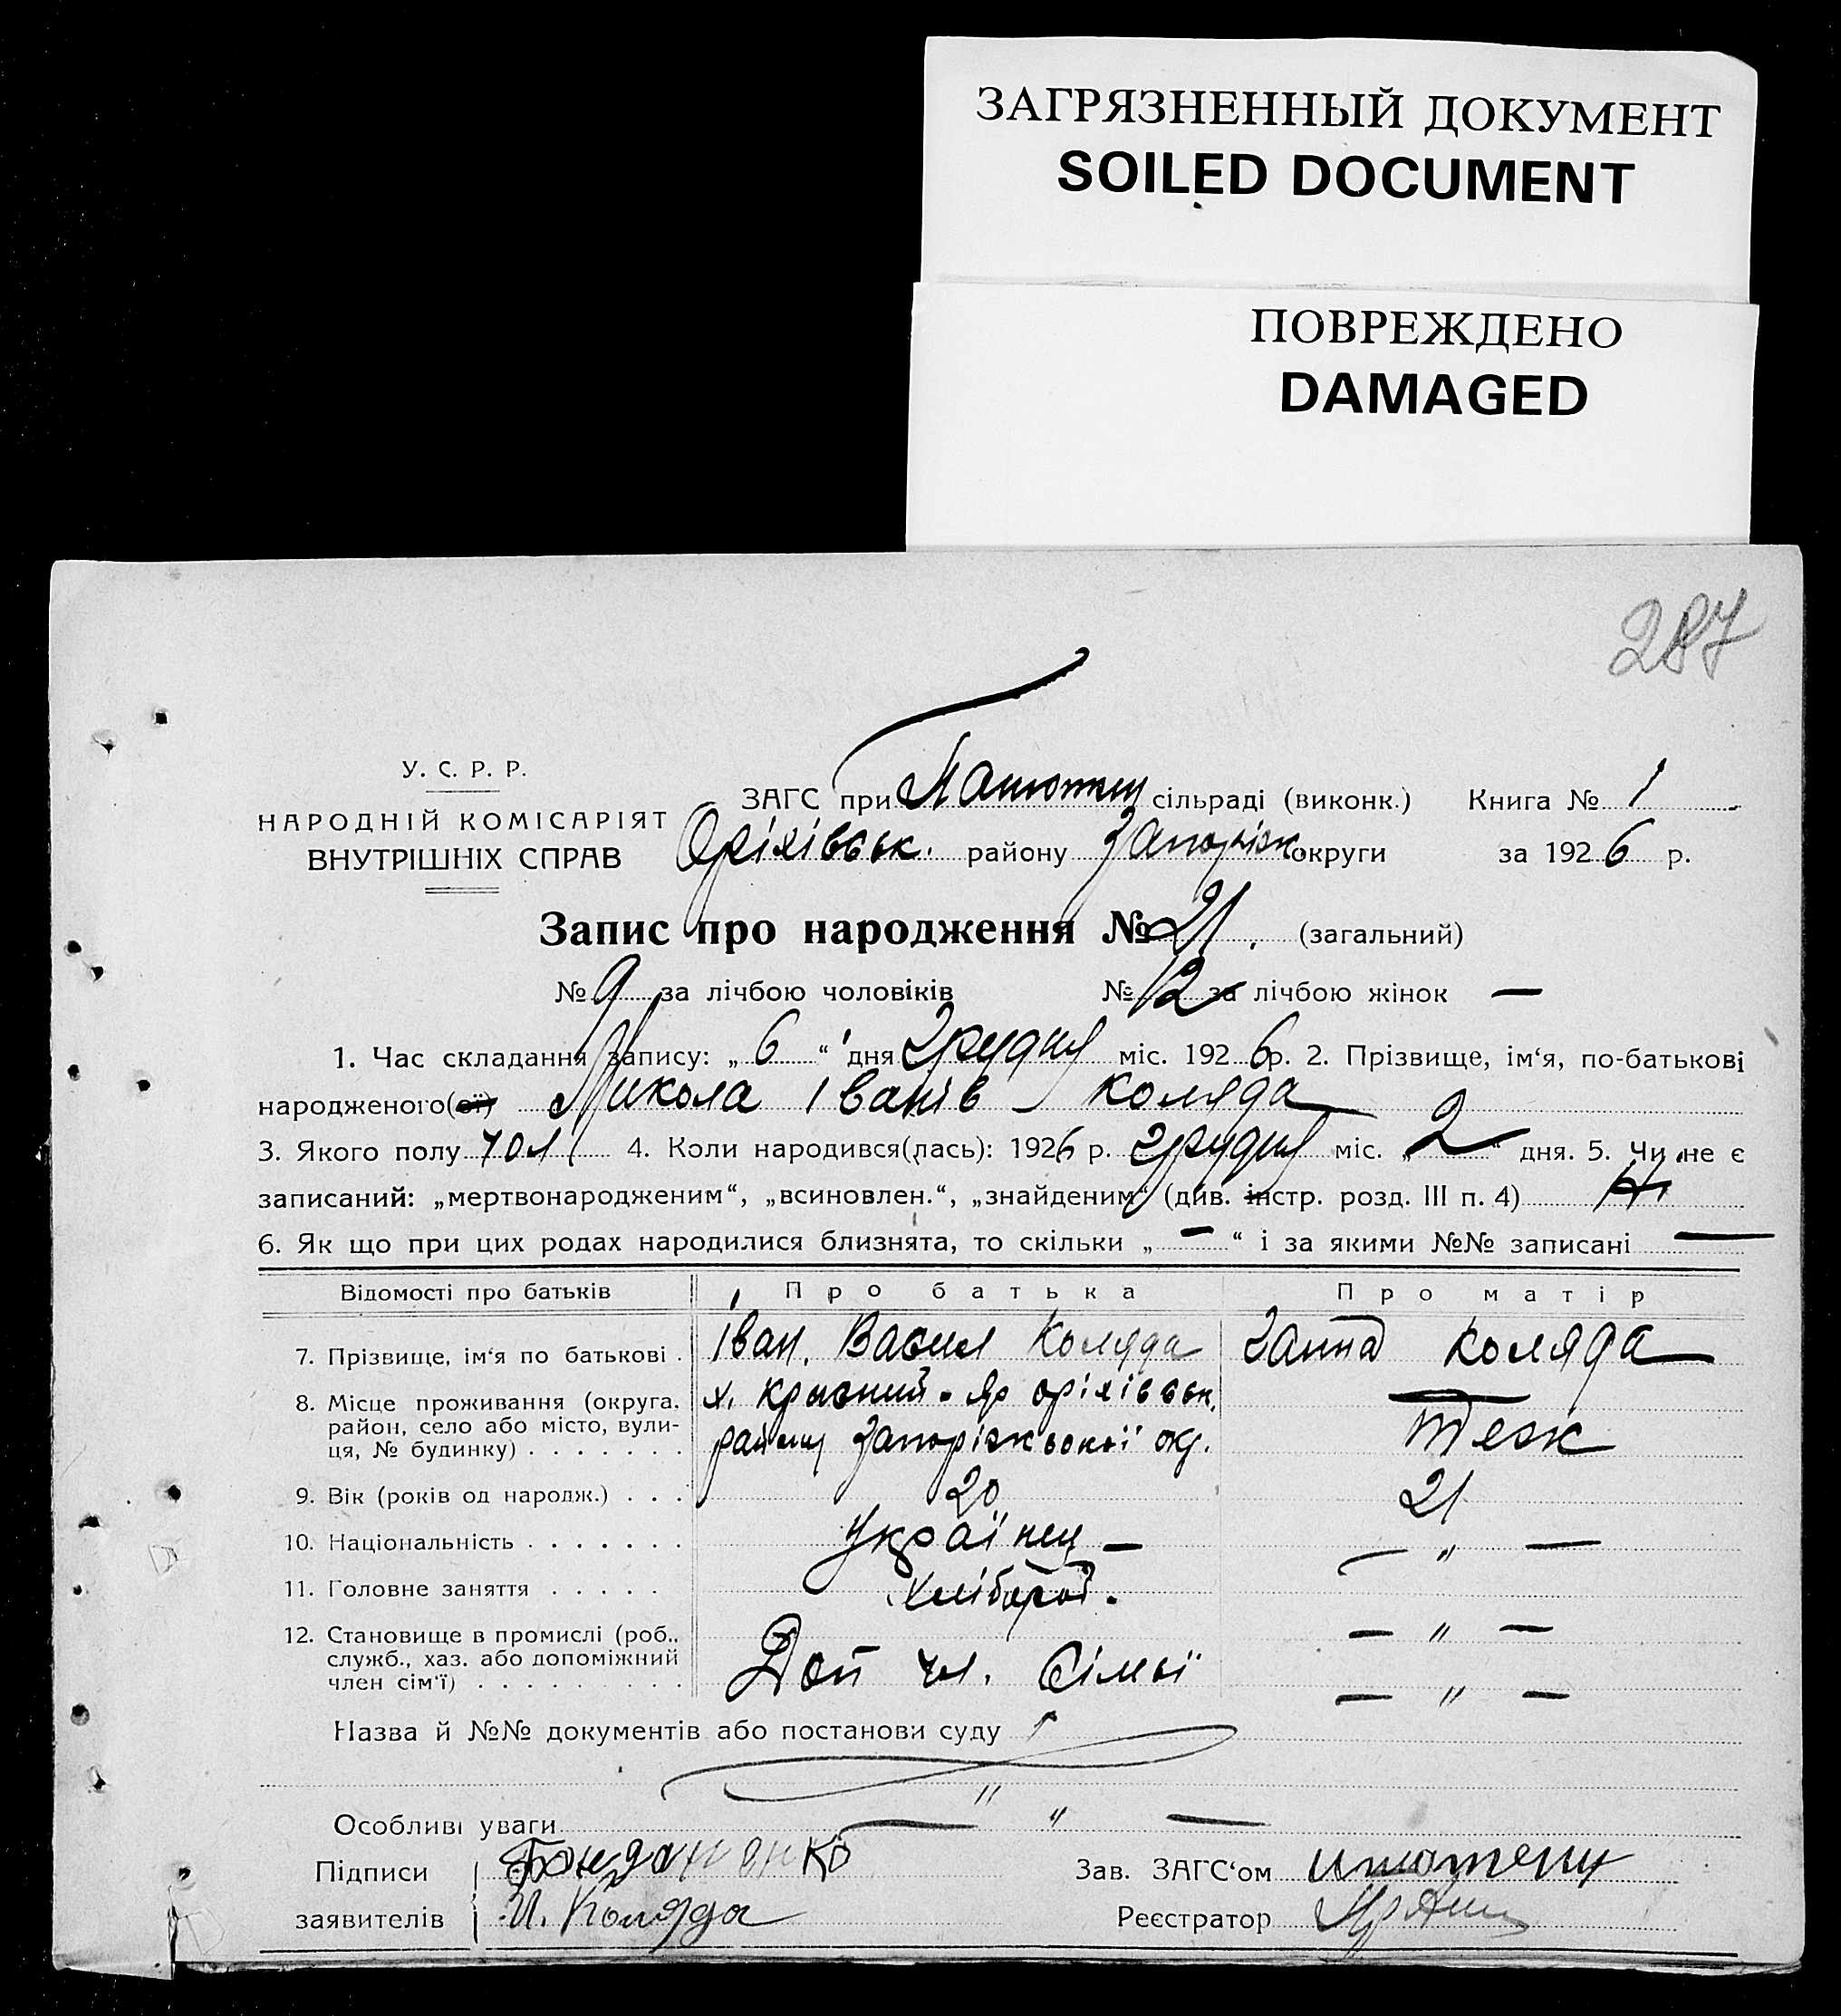 ЗАГРЯЗНЕННЫЙ ДОКУМЕНТ
SOILED DOCUMENT
ПОВРЕЖДЕНО
DAMAGED
287
У. С. Р. Р.
НАРОДНІЙ КОМІСАРІЯТ
ВНУТРІШНІХ СПРАВ
ЗАГС при сільраді (виконк.) Книга № 1
Оріхівськ. району Запоріж. округи за 1926 р.
Запис про народження № 21. (загальний)
№ 9 за лічбою чоловіків № 12 за лічбою жінок —
1. Час складання запису: „6“ дня Грудня міс. 1926 р. 2. Прізвище, ім‘я, по-батькові
народженого(ої) Микола Іванів Коляда
3. Якого полу чол 4. Коли народився(лась): 1926 р. грудня міс. „2“ дня. 5. Чи не є
записаний: „мертвонародженим“, „всиновлен.“, „знайденим“ (див. інстр. розд. III п. 4)
6. Як що при цих родах народилися близнята, то скільки „—“ і за якими №№ записані —
Відомості про батьків Про батька Про матір
7. Прізвище, ім‘я по батькові . Іван. Васил Коляда Ганна Коляда
8. Місце проживання (округа, х. Красний - Яр оріхівськ.
район, село або місто, вули- Теж
ця, № будинку) . . . . . . . району Запоріжської окр.
9. Вік (років од народж.) . . . 20 21
10. Національність . . . . . . . Українец — — „ —
11. Головне заняття . . . . . Хлібороб. — „ —
12. Становище в промислі (роб.,
служб., хаз. або допоміжний Доп чл. сімьї — „ —
член сім‘ї) . . . . . . . . .
Назва й №№ документів або постанови суду
Особливі уваги — „ —
Підписи Зав. ЗАГС‘ом
заявителів И. Коляда Реєстратор